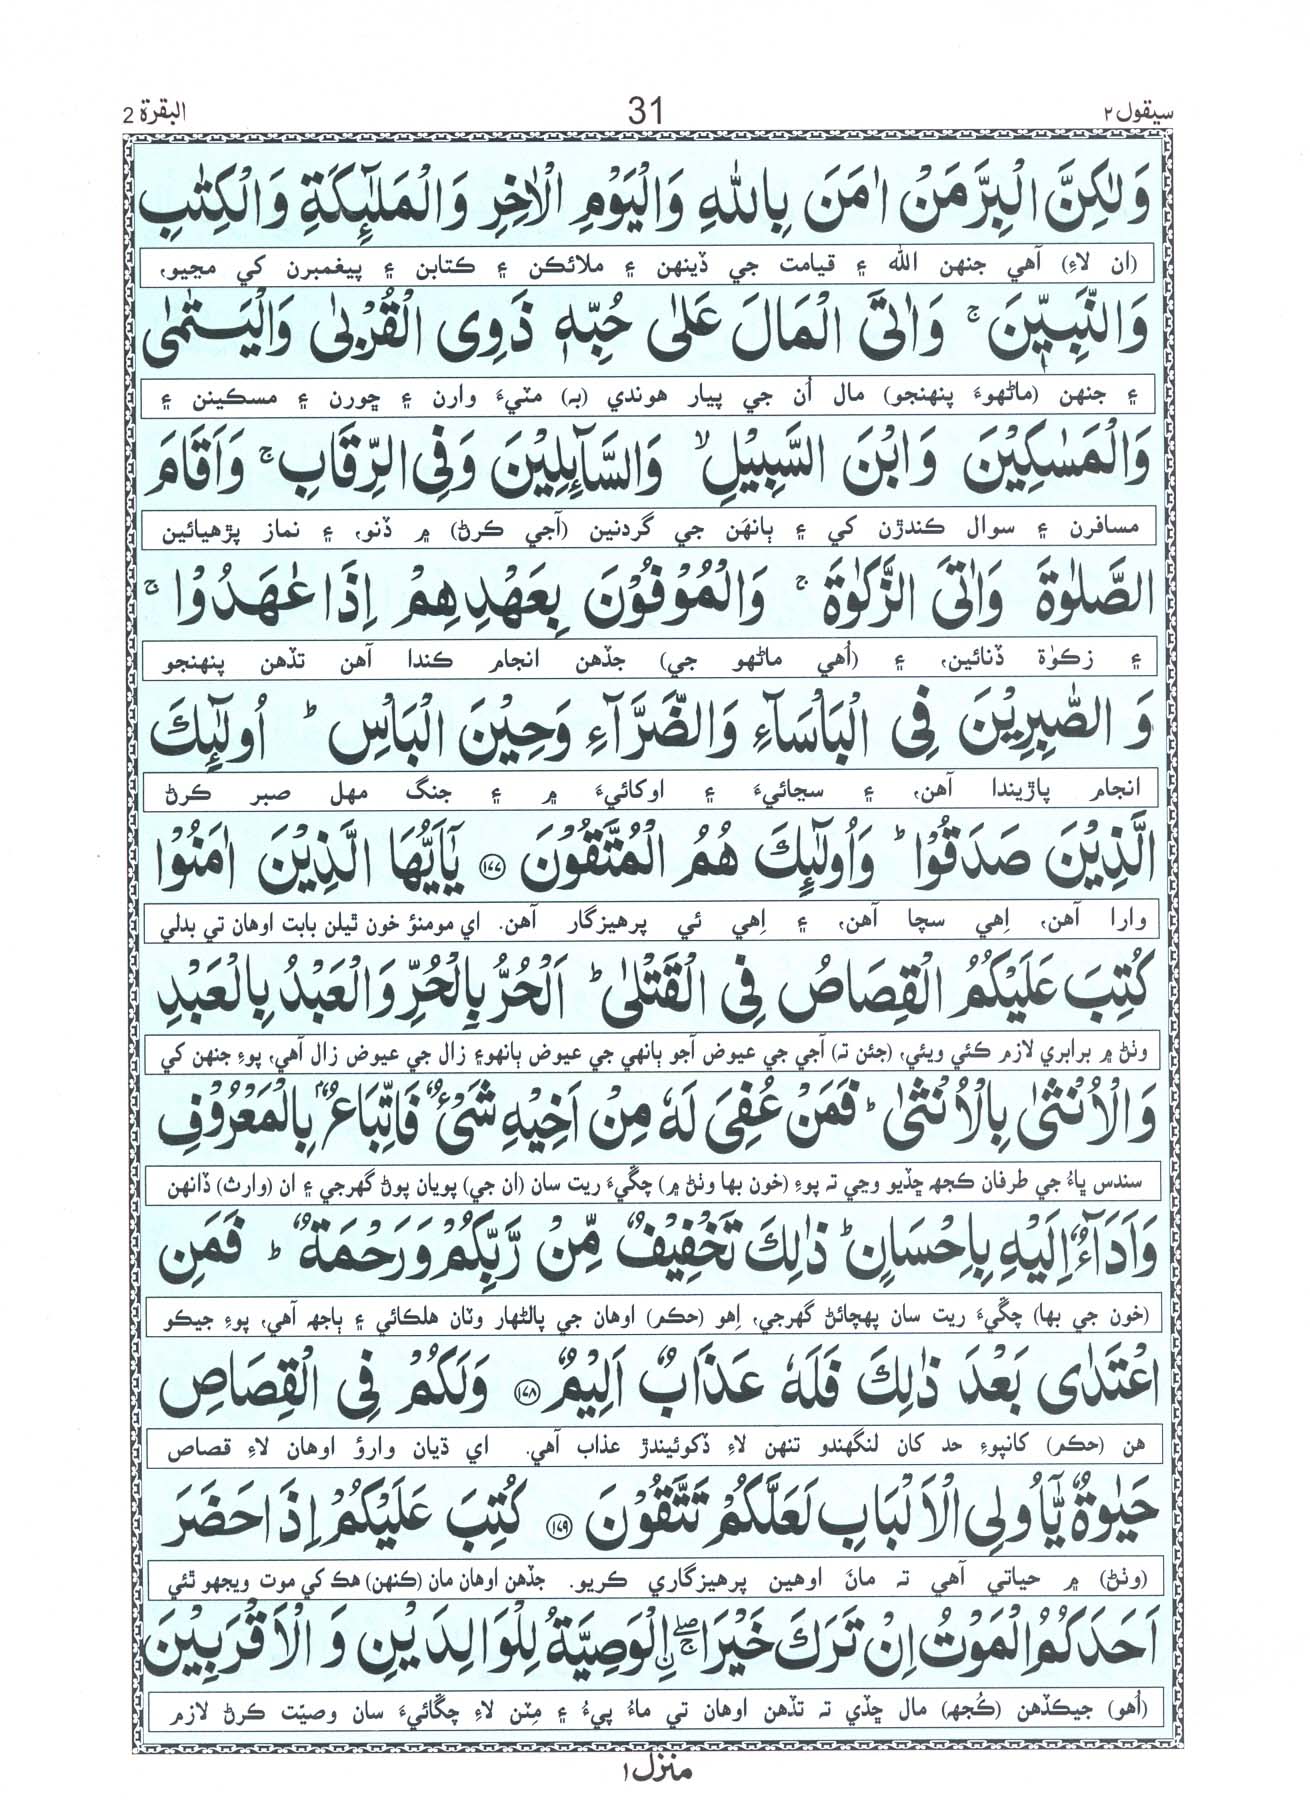 سيقول ٢
31
البقرة 2
وَلٰكِنَّ الْبِرَّ مَنْ اٰمَنَ بِاللّٰهِ وَالْيَوْمِ الْاٰخِرِ وَالْمَلٰٓئِكَةِ وَالْكِتٰبِ
(ان لاءِ) آهي جنهن الله ۽ قيامت جي ڏينهن ۽ ملائڪن ۽ ڪتابن ۽ پيغمبرن کي مڃيو،
وَالنَّبِيّٖنَ ۚ وَاٰتَى الْمَالَ عَلٰى حُبِّهٖ ذَوِى الْقُرْبٰى وَالْيَتٰمٰى
۽ جنهن (ماڻهوءَ پنهنجو) مال اُن جي پيار هوندي (به) مٽيءَ وارن ۽ ڇورن ۽ مسڪينن ۽
وَالْمَسٰكِيْنَ وَابْنَ السَّبِيْلِ ۙ وَالسَّآئِلِيْنَ وَفِى الرِّقَابِ ۚ وَاَقَامَ
مسافرن ۽ سوال ڪندڙن کي ۽ ٻانهَن جي گردنين (آجي ڪرڻ) ۾ ڏنو، ۽ نماز پڙهيائين
الصَّلٰوةَ وَاٰتَى الزَّكٰوةَ ۚ وَالْمُوْفُوْنَ بِعَهْدِهِمْ اِذَا عٰهَدُوْا ۚ
۽ زڪوٰة ڏنائين، ۽ (اُهي ماڻهو جي) جڏهن انجام ڪندا آهن تڏهن پنهنجو
وَالصّٰبِرِيْنَ فِى الْبَاْسَآءِ وَالضَّرَّآءِ وَحِيْنَ الْبَاْسِ ؕ اُولٰٓئِكَ
انجام پاڙيندا آهن، ۽ سڃائيءَ ۽ اوکائيءَ ۾ ۽ جنگ مهل صبر ڪرڻ
الَّذِيْنَ صَدَقُوْا ؕ وَاُولٰٓئِكَ هُمُ الْمُتَّقُوْنَ ١٧٧ يٰٓاَيُّهَا الَّذِيْنَ اٰمَنُوْا
وارا آهن، اِهي سچا آهن، ۽ اِهي ئي پرهيزگار آهن. اي مومنؤ خون ٿيلن بابت اوهان تي بدلي
كُتِبَ عَلَيْكُمُ الْقِصَاصُ فِى الْقَتْلٰى ؕ اَلْحُرُّ بِالْحُرِّ وَالْعَبْدُ بِالْعَبْدِ
وٺڻ ۾ برابري لازم ڪئي ويئي، (جئن ته) آجي جي عيوض آجو ٻانهي جي عيوض ٻانهو۽ زال جي عيوض زال آهي، پوءِ جنهن کي
وَالْاُنْثٰى بِالْاُنْثٰى ؕ فَمَنْ عُفِىَ لَهٗ مِنْ اَخِيْهِ شَىْءٌ فَاتِّبَاعٌۢ بِالْمَعْرُوْفِ
سندس ڀاءُ جي طرفان ڪجهه ڇڏيو وڃي ته پوءِ (خون بها وٺڻ ۾) چڱيءَ ريت سان (ان جي) پويان پوڻ گهرجي ۽ ان (وارث) ڏانهن
وَاَدَآءٌ اِلَيْهِ بِاِحْسَانٍ ؕ ذٰلِكَ تَخْفِيْفٌ مِّنْ رَّبِّكُمْ وَرَحْمَةٌ ؕ فَمَنِ
(خون جي بها) چڱيءَ ريت سان پهچائڻ گهرجي، اِهو (حڪم) اوهان جي پالڻهار وٽان هلڪائي ۽ ٻاجهه آهي، پوءِ جيڪو
اعْتَدٰى بَعْدَ ذٰلِكَ فَلَهٗ عَذَابٌ اَلِيْمٌ ١٧٨ وَلَكُمْ فِى الْقِصَاصِ
هن (حڪم) کانپوءِ حد کان لنگهندو تنهن لاءِ ڏکوئيندڙ عذاب آهي. اي ڌيان وارؤ اوهان لاءِ قصاص
حَيٰوةٌ يّٰٓاُولِى الْاَلْبَابِ لَعَلَّكُمْ تَتَّقُوْنَ ١٧٩ كُتِبَ عَلَيْكُمْ اِذَا حَضَرَ
(وٺڻ) ۾ حياتي آهي ته مانَ اوهين پرهيزگاري ڪريو. جڏهن اوهان مان (ڪنهن) هڪ کي موت ويجهو ٿئي
اَحَدَكُمُ الْمَوْتُ اِنْ تَرَكَ خَيْرَا ۖۚ ۨالْوَصِيَّةُ لِلْوَالِدَيْنِ وَالْاَقْرَبِيْنَ
(اُهو) جيڪڏهن (ڪُجهه) مال ڇڏي ته تڏهن اوهان تي ماءُ پيءُ ۽ مِٽن لاءِ چڱائيءَ سان وصيّت ڪرڻ لازم
منزل ١